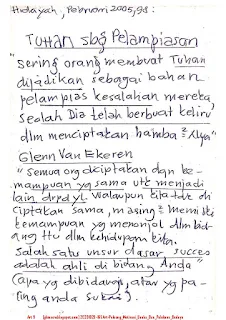 Hidayah, Pebruari 2005, 98:
TUHAN sbg Pelampiasan
"sering orang membuat Tuhan
dijadikan sebagai bahan
pelampias kesalahan mereka,
seolah Dia telah berbuat keliru
dlm menciptakan hamba²-Nya"
Glenn Van Ekeren
"Semua org diciptakan dgn ke-
mampuan yg sama utk menjadi
lain drpd yl. Walaupun kita tdk di
ciptakan sama, masing² memiliki
kemampuan yg menonjol dlm bid-
ang ttu dlm kehidupan kita.
Salah satu unsur dasar succes
adalah ahli di bidang Anda
(apa yg dibidangi, atau yg pa-
ling anda sukai).